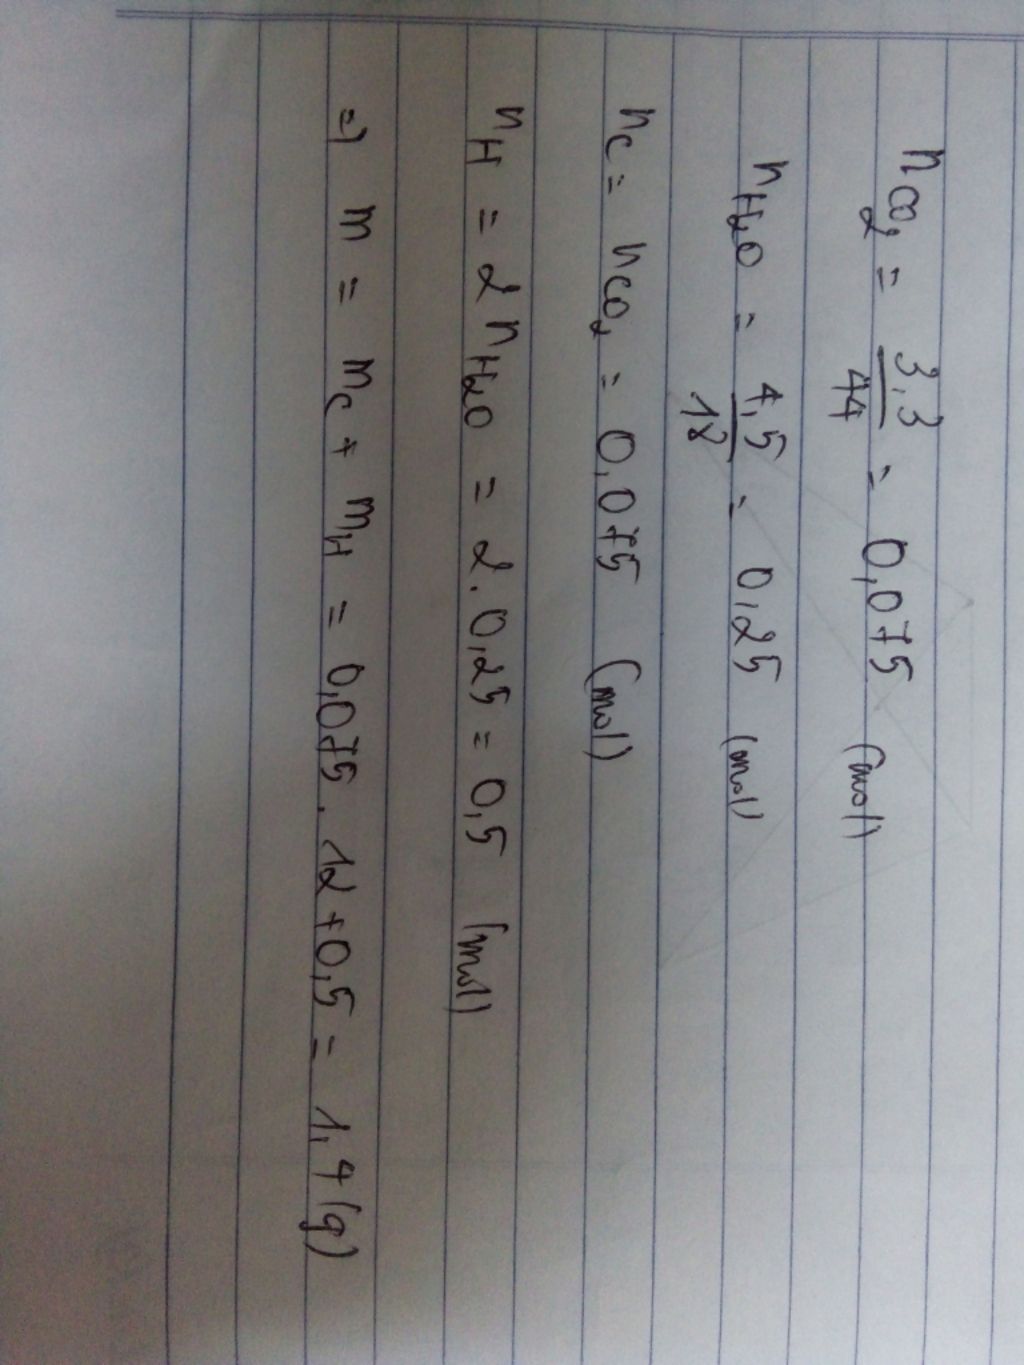 n_CO₂ = 3,3/44 = 0,075 (mol)
n_H₂O = 4,5/18 = 0,25 (mol)
n_C = n_CO₂ = 0,075 (mol)
n_H = 2 n_H₂O = 2.0,25 = 0,5 (mol)
=) m = m_C + m_H = 0,075.12+0,5 = 1,4 (g)